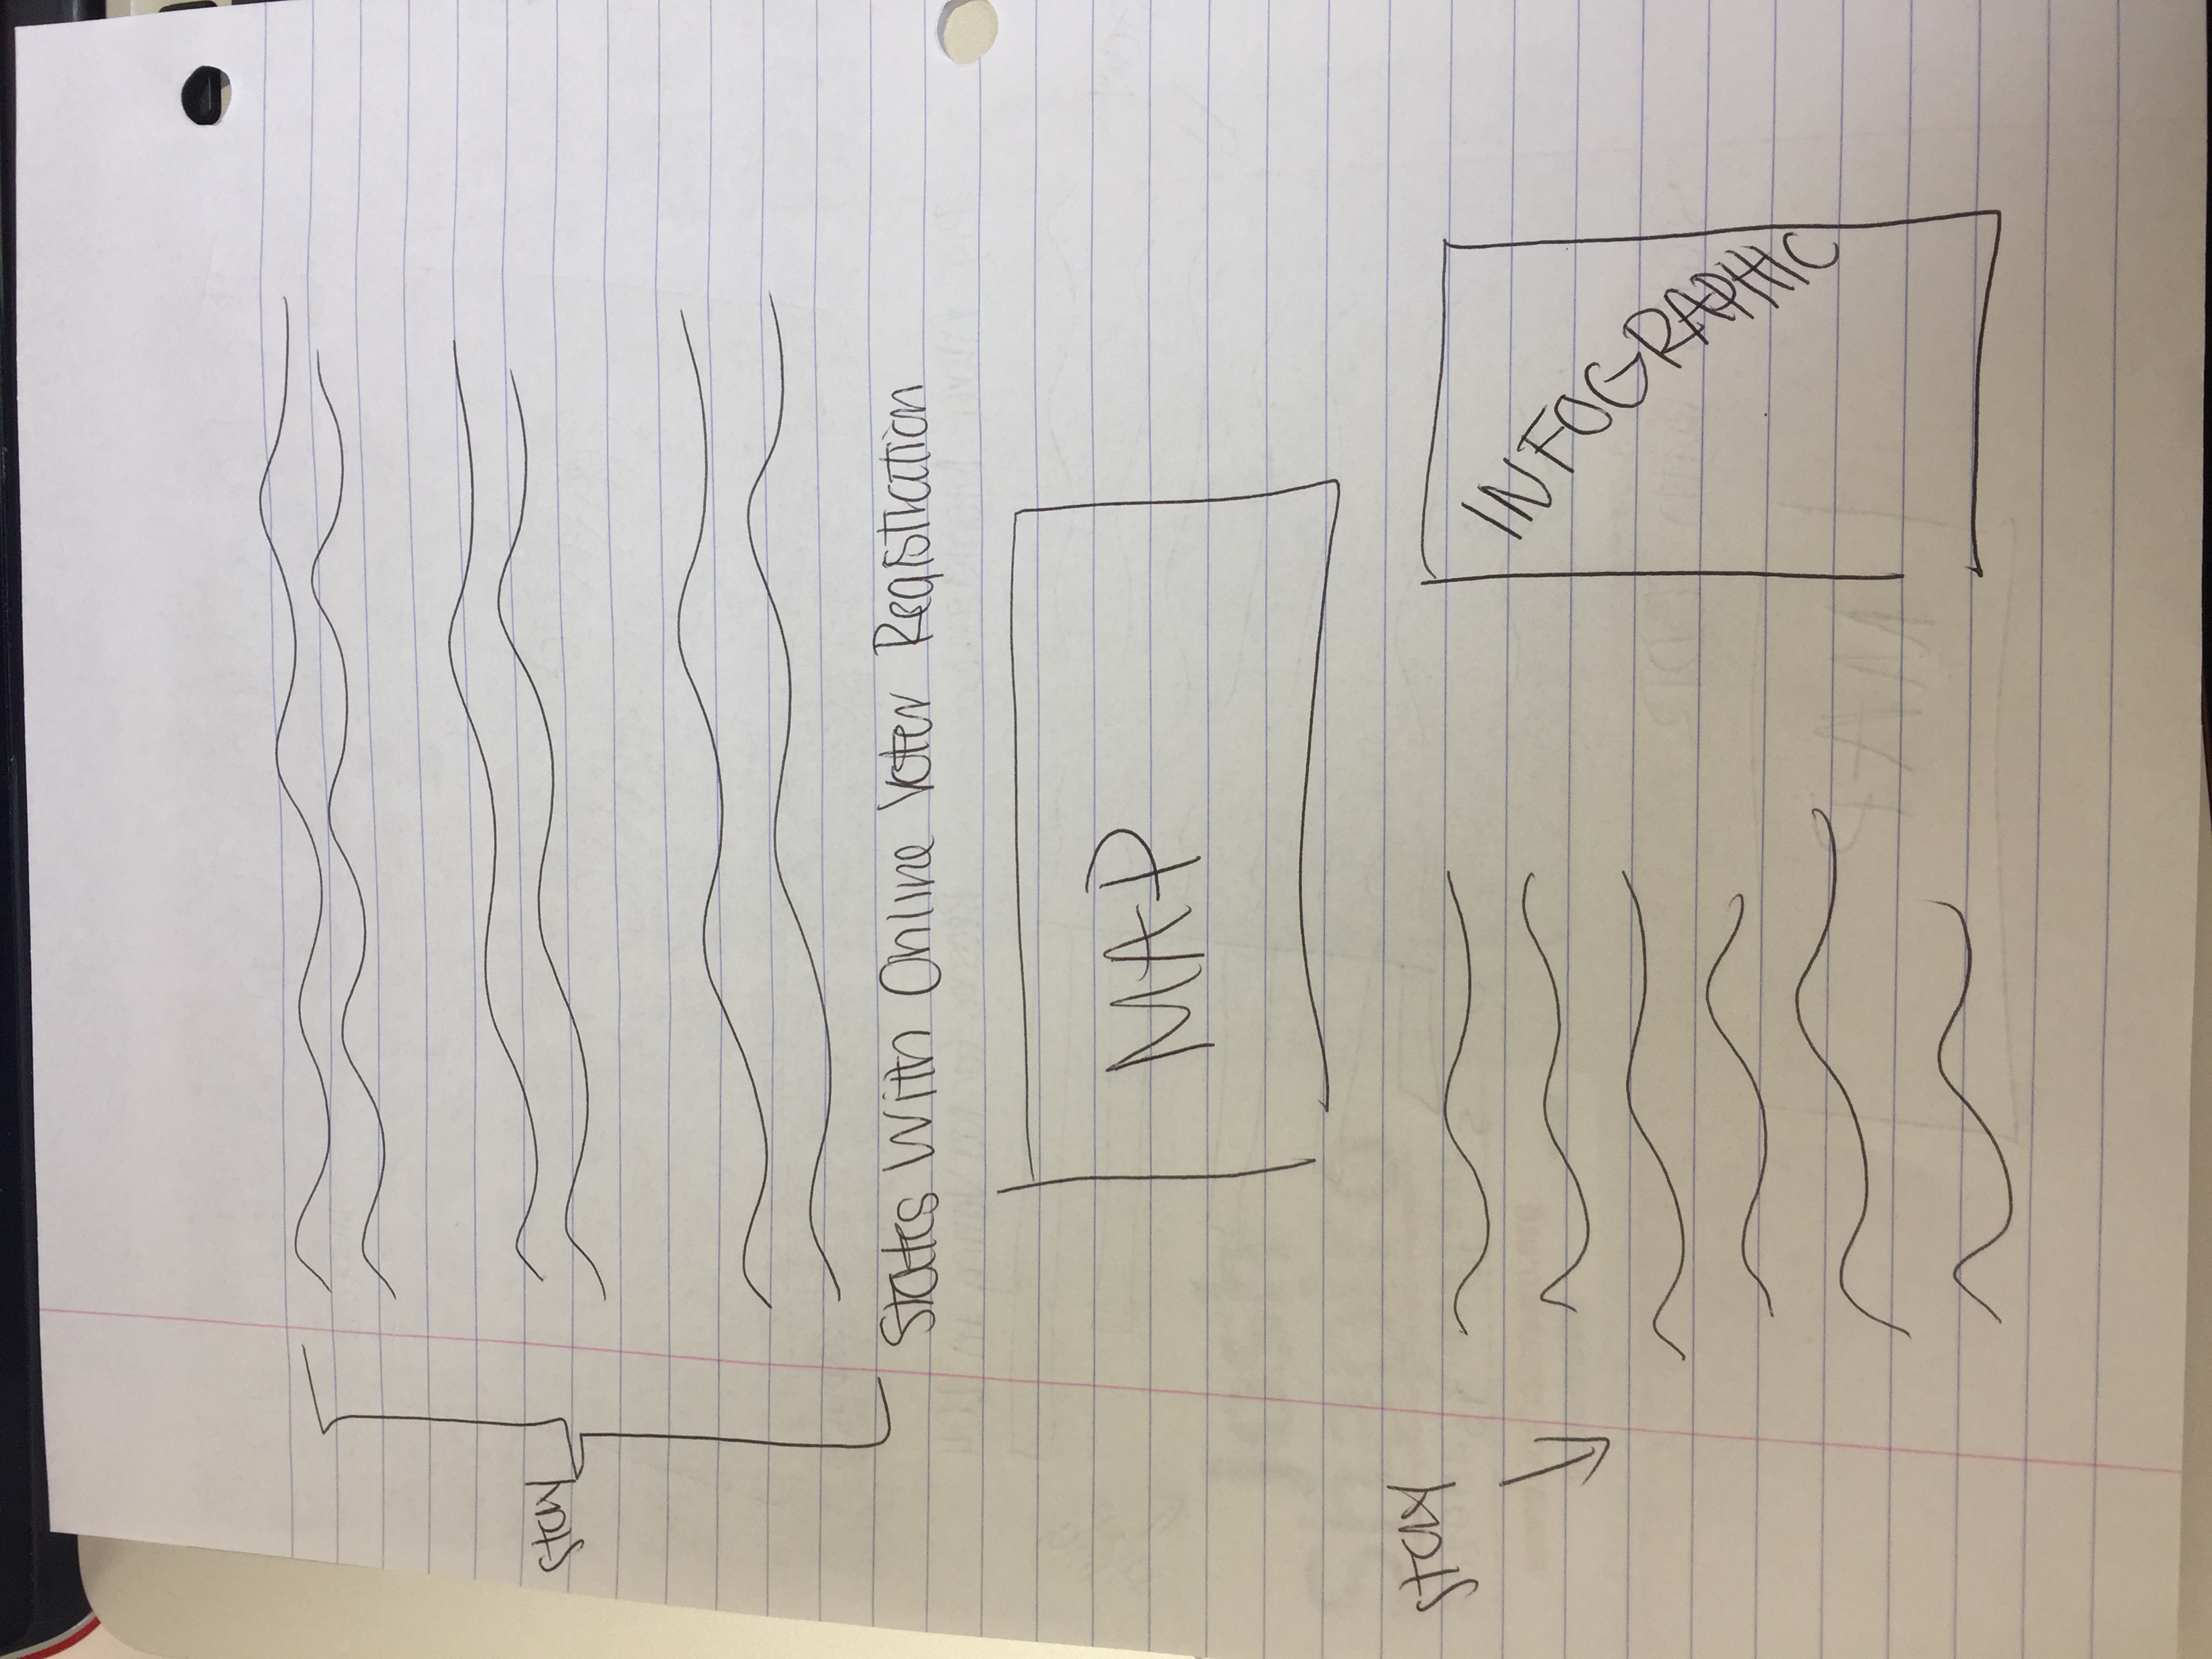 stay
States With Online Voter Registration
MAP
stay
INFOGRAPHIC